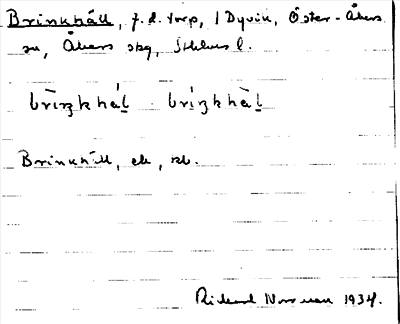 Brinkhäll, f.d. torp, 1 Dyvik, Öster-Åkers
sn, Åkers skg, Sthlms l.
brìŋkhál brìŋkhàl
Brinkhäll, ek, kb.
Rickard Norrman 1934.